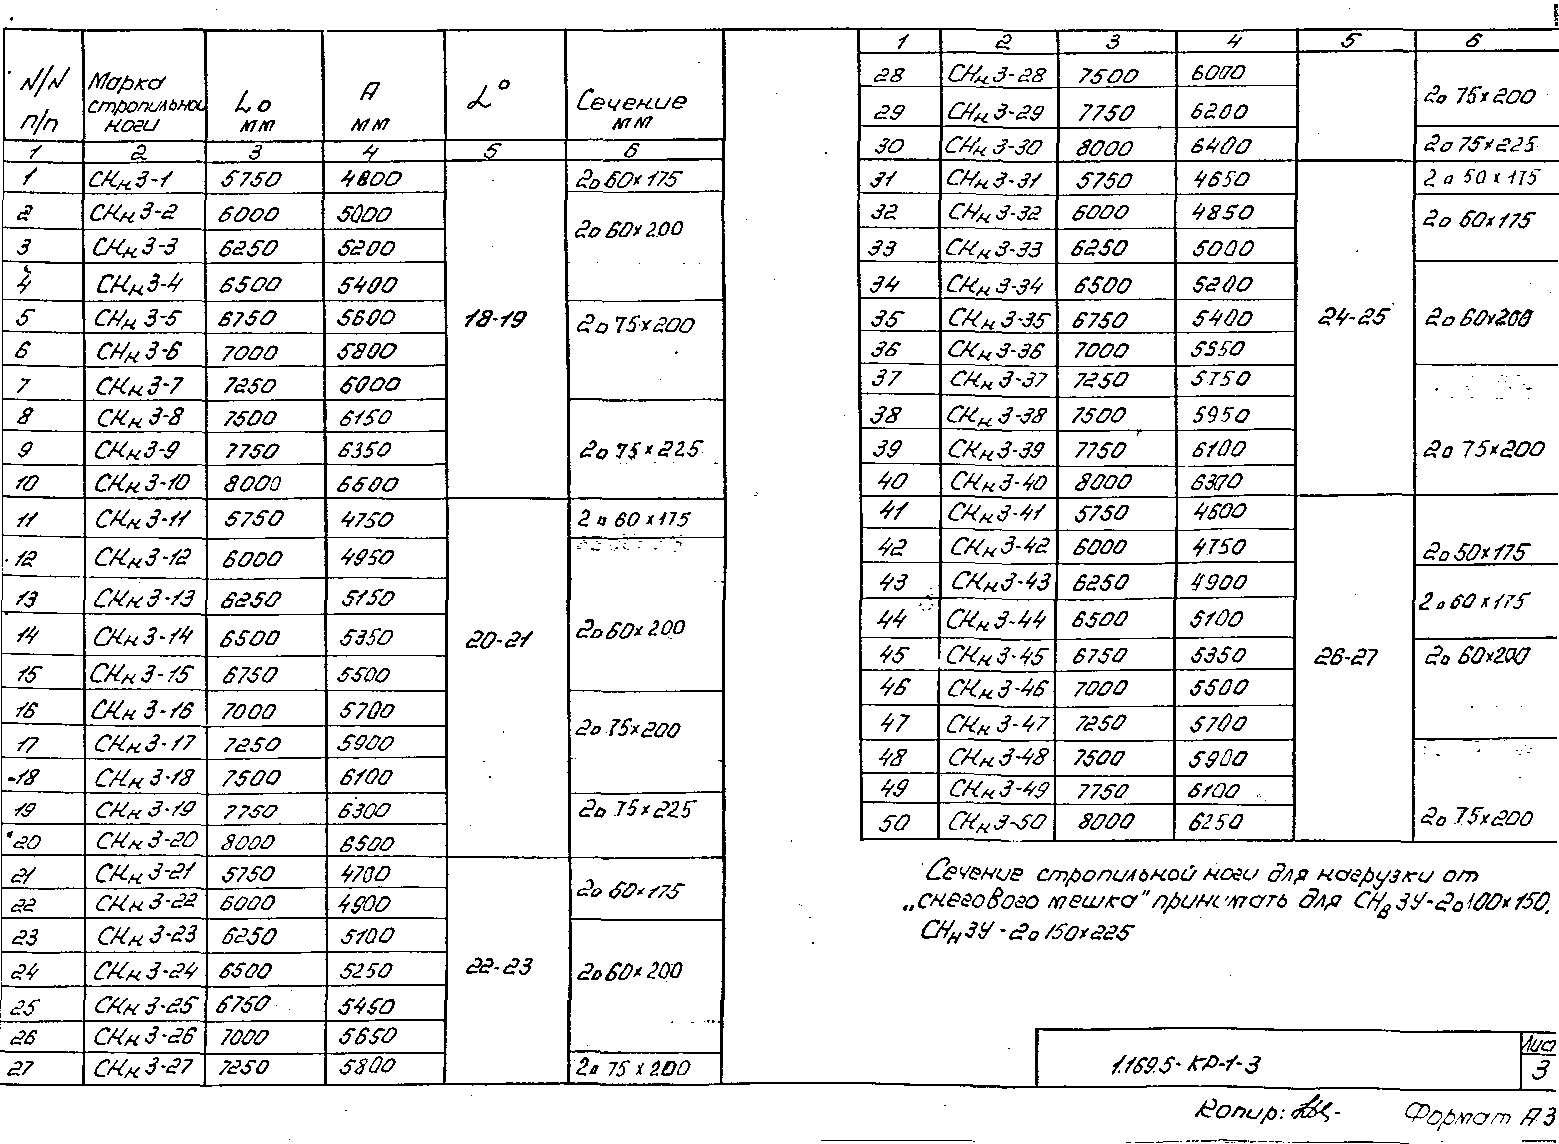 N/N п/п Марка стропильной ноги Lо мм А мм L° Сечение мм
1 2 3 4 5 6
1 СНн 3-1 5750 4800 2о 60×175
2 СНн 3-2 6000 5000 2о 60×200
3 СНн 3-3 6250 5200
4 СНн 3-4 6500 5400
5 СНн 3-5 6750 5600 18-19 2о 75×200
6 СНн 3-6 7000 5800
7 СНн 3-7 7250 6000
8 СНн 3-8 7500 6150
9 СНн 3-9 7750 6350 2о 75×225
10 СНн 3-10 8000 6600
11 СНн 3-11 5750 4750 2о 60×175
12 СНн 3-12 6000 4950
13 СНн 3-13 6250 5150
14 СНн 3-14 6500 5350 20-21 2о 60×200
15 СНн 3-15 6750 5500
16 СНн 3-16 7000 5700 2о 75×200
17 СНн 3-17 7250 5900
18 СНн 3-18 7500 6100
19 СНн 3-19 7750 6300 2о 75×225
20 СНн 3-20 8000 6500
21 СНн 3-21 5750 4700 2о 60×175
22 СНн 3-22 6000 4900
23 СНн 3-23 6250 5100
24 СНн 3-24 6500 5250 22-23 2о 60×200
25 СНн 3-25 6750 5450
26 СНн 3-26 7000 5650
27 СНн 3-27 7250 5800 2о 75×200
1 2 3 4 5 6
28 СНн 3-28 7500 6000 2о 75×200
29 СНн 3-29 7750 6200
30 СНн 3-30 8000 6400 2о 75×225
31 СНн 3-31 5750 4650 2о 50×175
32 СНн 3-32 6000 4850 2о 60×175
33 СНн 3-33 6250 5000
34 СНн 3-34 6500 5200
35 СНн 3-35 6750 5400 24-25 2о 60×200
36 СНн 3-36 7000 5550
37 СНн 3-37 7250 5750
38 СНн 3-38 7500 5950
39 СНн 3-39 7750 6100 2о 75×200
40 СНн 3-40 8000 6300
41 СНн 3-41 5750 4600
42 СНн 3-42 6000 4750 2о 50×175
43 СНн 3-43 6250 4900 2о 60×175
44 СНн 3-44 6500 5100
45 СНн 3-45 6750 5350 26-27 2о 60×200
46 СНн 3-46 7000 5500
47 СНн 3-47 7250 5700
48 СНн 3-48 7500 5900
49 СНн 3-49 7750 6100
50 СНн 3-50 8000 6250 2о 75×200
Сечение стропильной ноги для нагрузки от
„снегового мешка" принимать для СНв 3У-2о100×150,
СНн 3У-2о 150×225
1.169.5-КР-1-3
Лист
3
Копир:
Формат А3